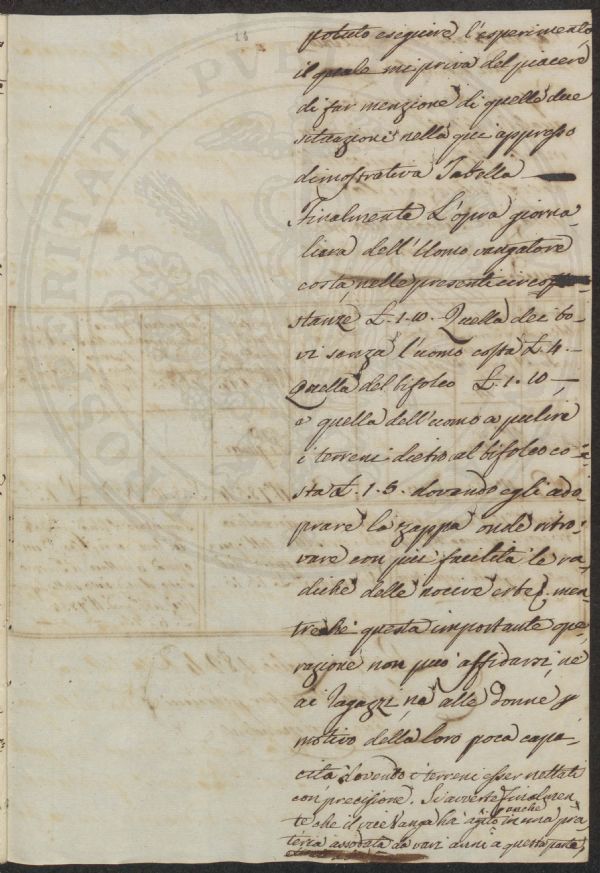 potuto eseguire l'esperimento,
il quale mi priva del piacere
di far menzione di quelle due
situazioni nella qui appresso
dimostrativa Tabella
Finalmente L'opra giorna-
liera dell'Uomo vangatore
costa, nelle presenti circo-
stanze £. 1.10. Quella dei bo-
vi senza l'uomo costa £. 4. -
Quella del bifolco £. 1.10 -,
e quella dell'uomo a pulire
i terreni dietro al bifolco co-
sta £. 1.5. dovendo egli ado-
prare la zappa onde ritro-
vare con più facilità le ra-
diche delle nocive erbe, men-
treché questa importante ope-
razione non può affidarsi, nè
ai Ragazzi, nè alle donne p
motivo della loro poca capa-
cità dovendo i terreni esser nettati
con precisione. Si avverte finalmen-
te che il vice Vanga ha agito in una pra
teria assodata da vari anni a questa parte,